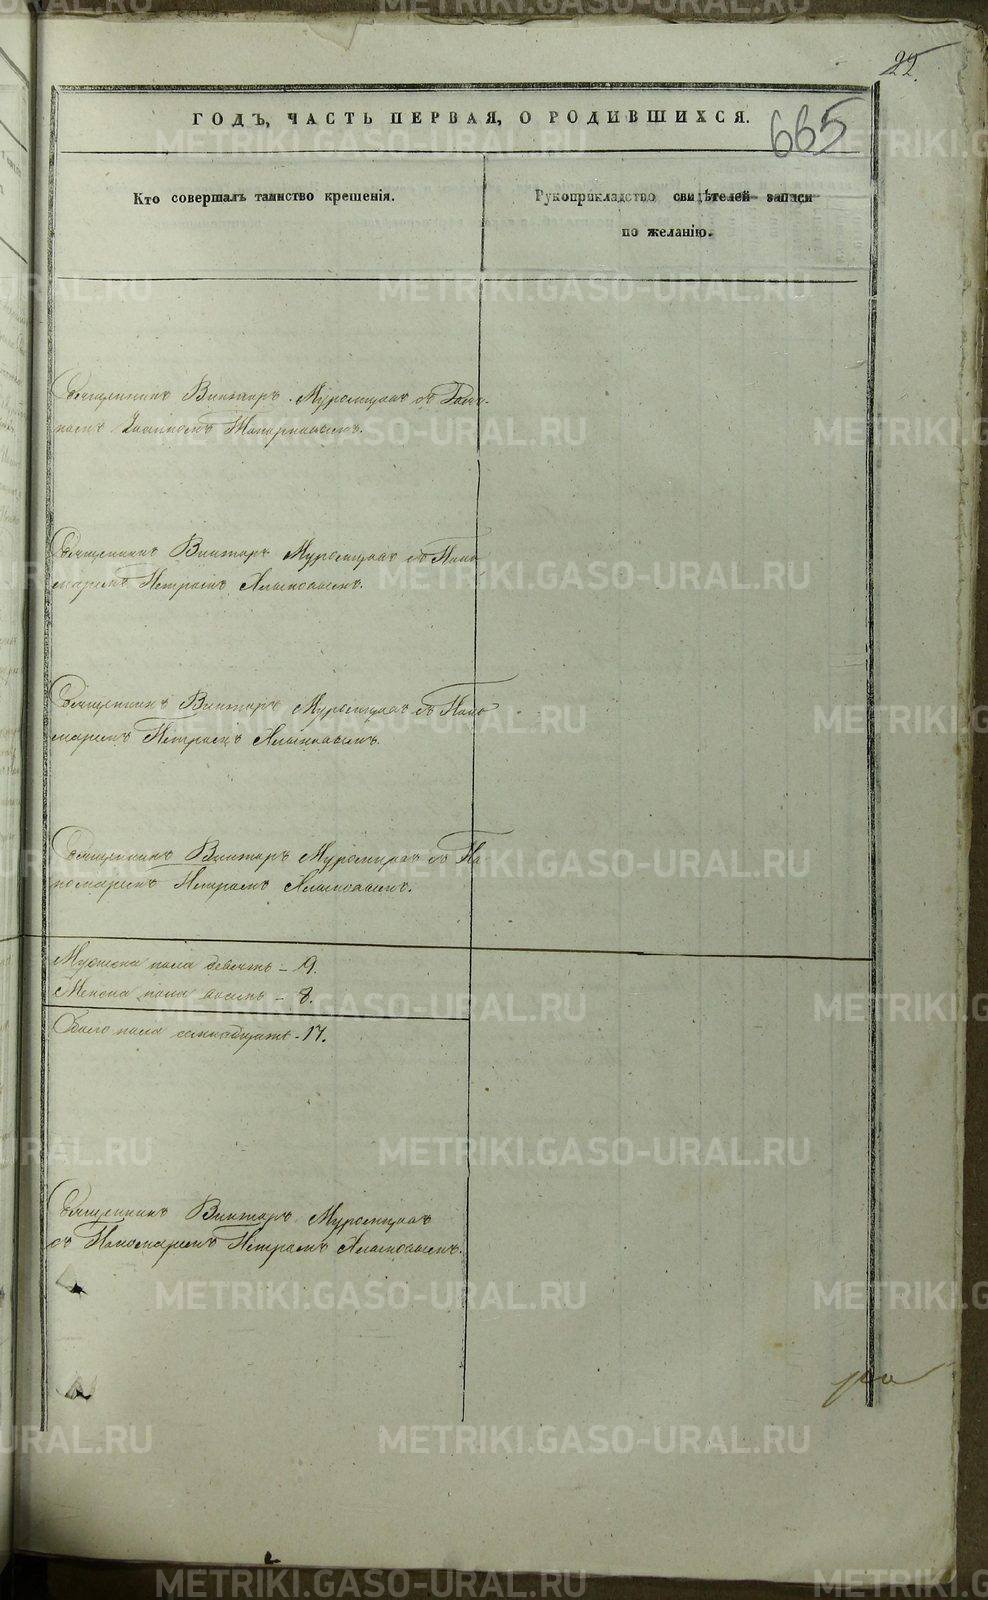 22.
ГОДЪ, ЧАСТЬ ПЕРВАЯ, О РОДИВШИХСЯ.
665
Кто совершалъ таинство крещенія.
Рукоприкладство свидѣтелей записи
по желанію.
Священникъ Викторъ Муромцовъ съ
Священникъ Викторъ Муромцовъ съ Поно
маремъ Петромъ
Священникъ Викторъ Муромцовъ съ Поно
маремъ Петромъ
Священникъ Викторъ Муромцовъ съ По
номаремъ Петромъ
Мужеска пола девять - 9.
Женска пола восемь - 8.
Обоего пола семнадцать - 17.
Священникъ Викторъ Муромцовъ
съ Пономаремъ Петромъ
METRIKI.GASO-URAL.RU